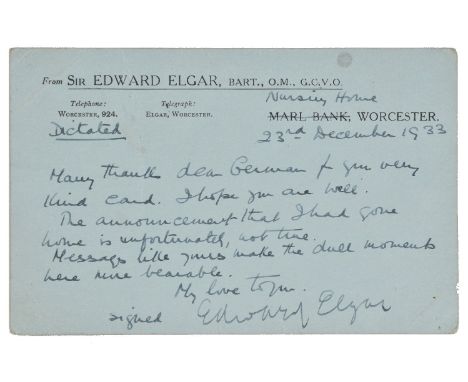 From SIR EDWARD ELGAR, BART., O.M., G.C.V.O.
Telephone: Telegraph: Nursing Home
WORCESTER, 924. ELGAR, WORCESTER. MARL BANK, WORCESTER.
Dictated 23rd December 1933
Many thanks dear German for your very
kind card. I hope you are well.
The announcement that I had gone
home is unfortunately, not true.
Messages like yours make the dull moments
here more bearable.
My love to you.
signed Edward Elgar